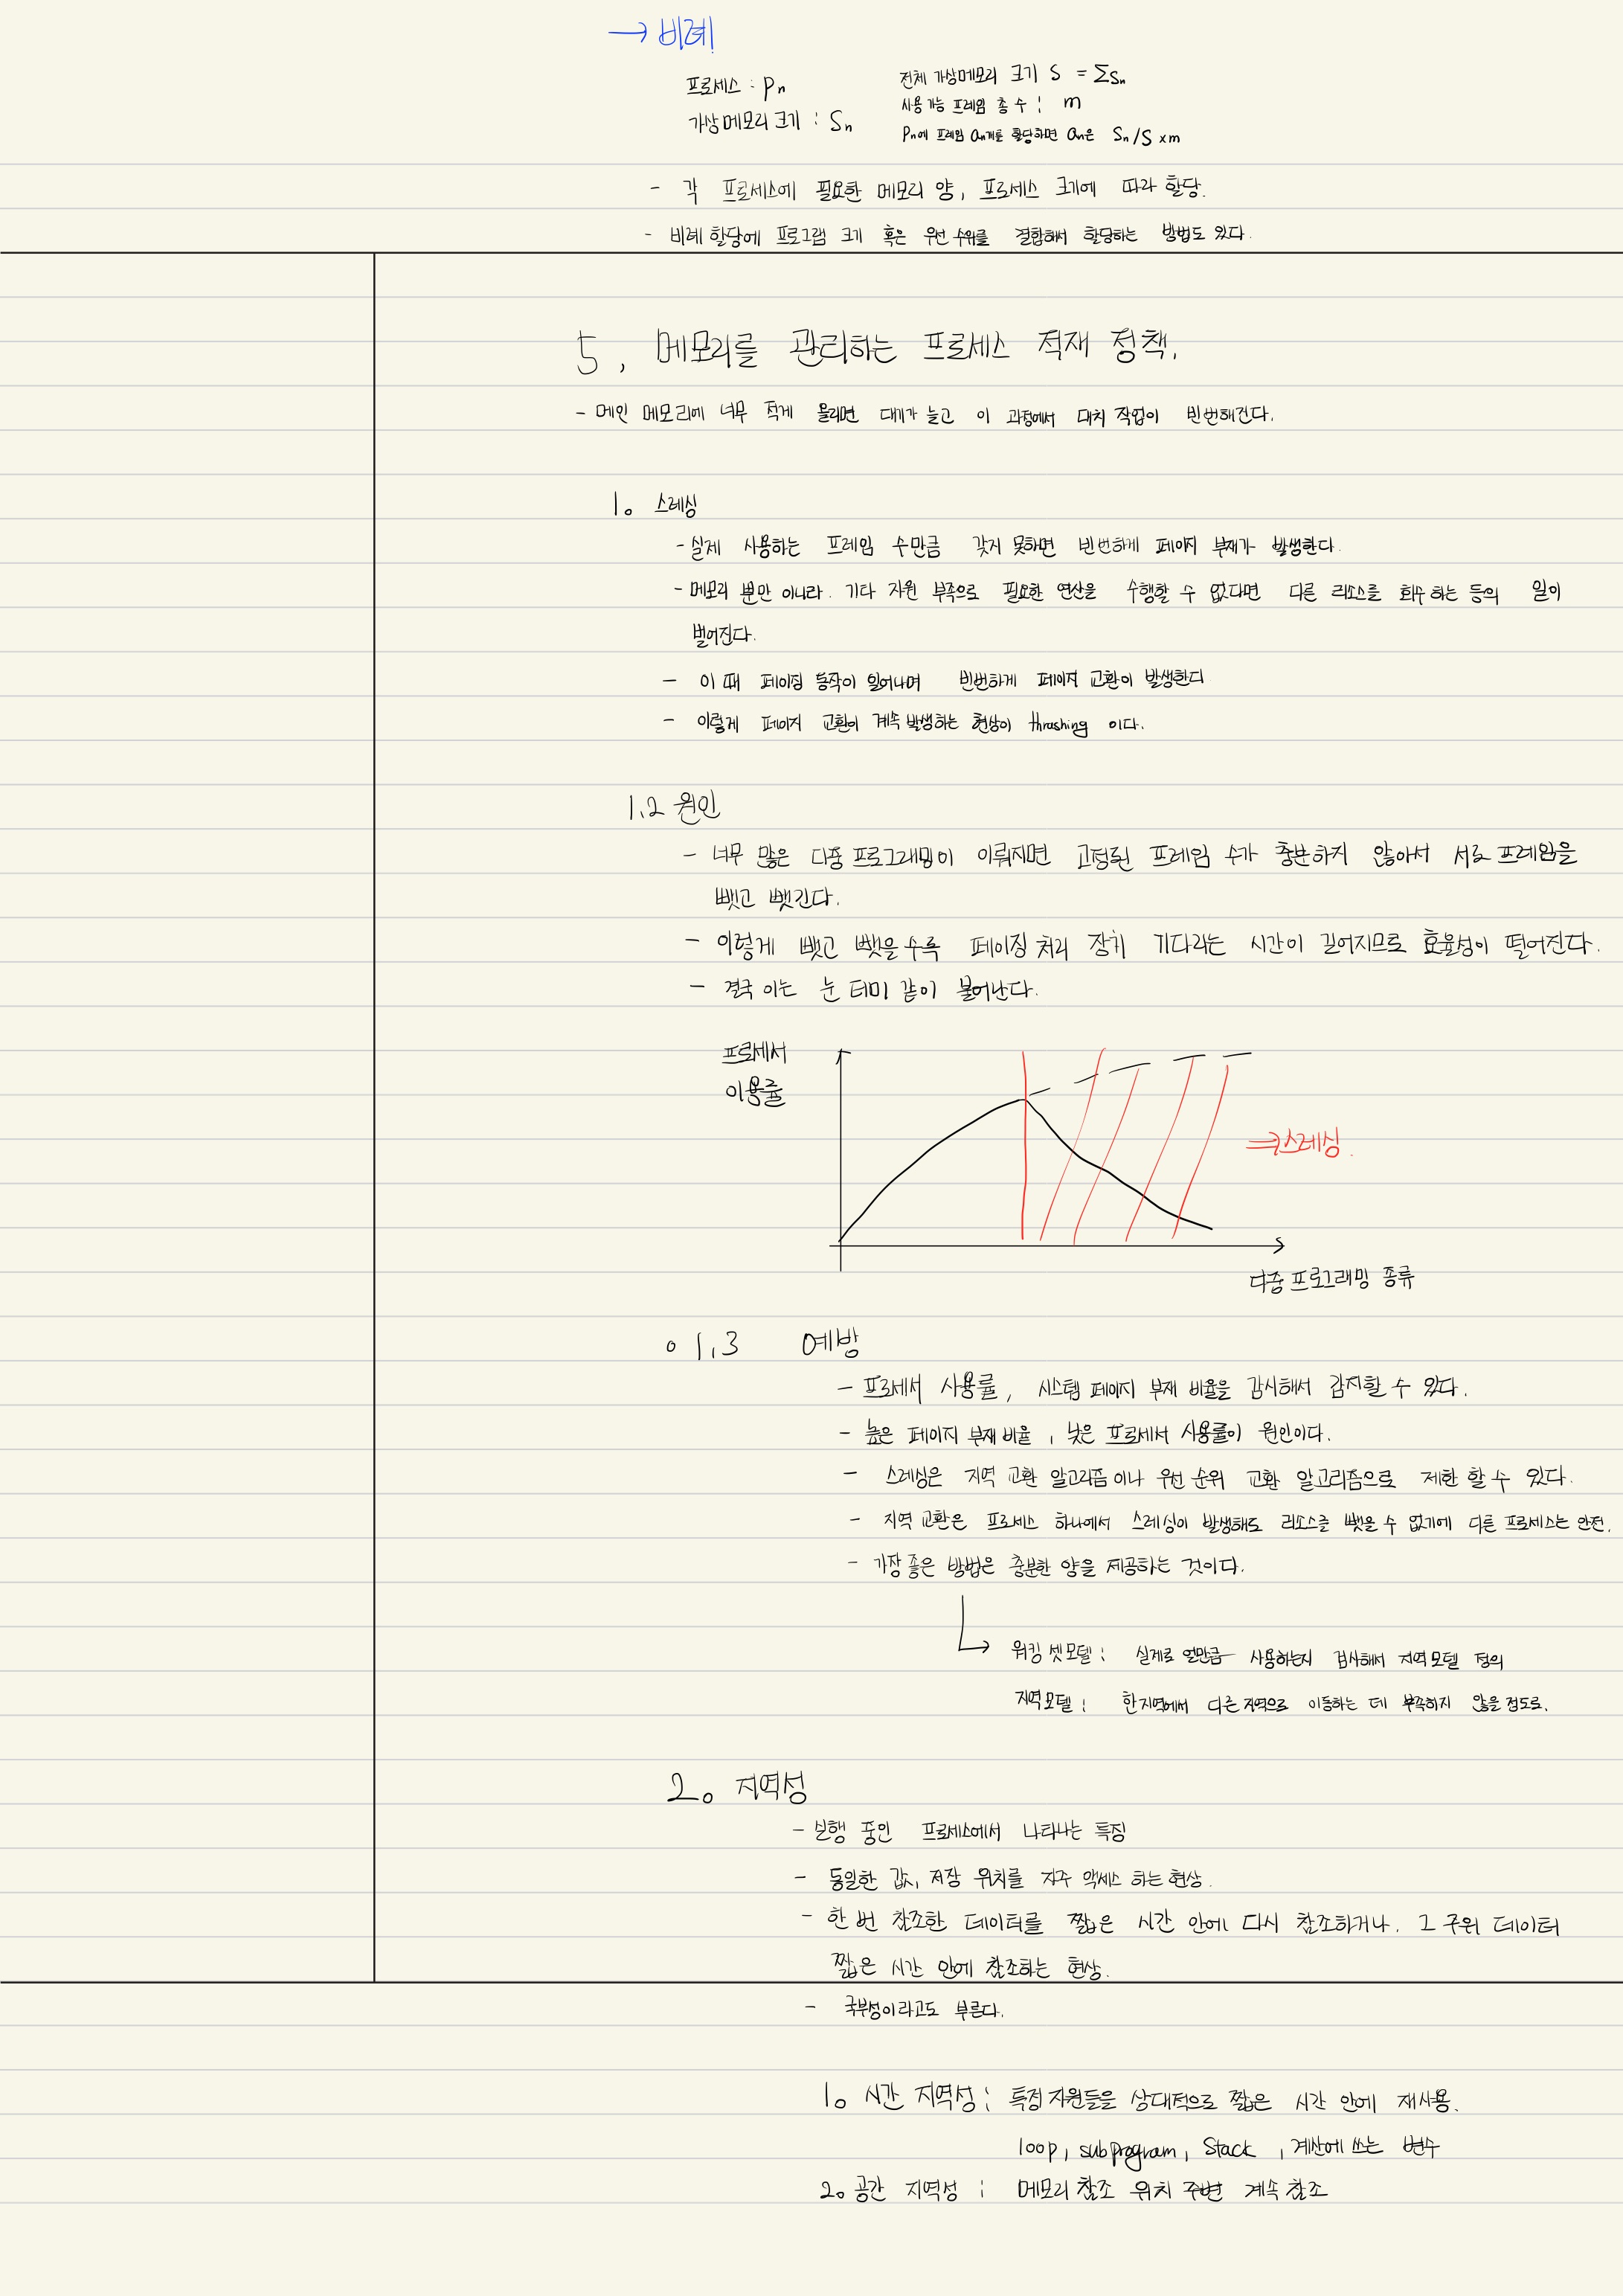 → 비례
프로세스 : Pn
가상메모리 크기 : Sn
전체 가상메모리 크기 S = ΣSn
사용가능 프레임 총 수 : m
Pn에 프레임 an개를 할당하면 an은 Sn/S × m
- 각 프로세스에 필요한 메모리 양, 프로세스 크기에 따라 할당.
- 비례 할당에 프로그램 크기 혹은 우선 순위를 결합해서 할당하는 방법도 있다.
5, 메모리를 관리하는 프로세스 적재 정책.
- 메인 메모리에 너무 적게 올리면 대기가 늘고 이 과정에서 대치 작업이 빈번해진다.
1. 스레싱
- 실제 사용하는 프레임 수만큼 갖지 못하면 빈번하게 페이지 부재가 발생한다.
- 메모리 뿐만 아니라. 기타 자원 부족으로 필요한 연산을 수행할 수 없다면 다른 리소스를 회수 하는 등의 일이
벌어진다.
- 이 때 페이징 동작이 일어나며 빈번하게 페이지 교환이 발생한다
- 이렇게 페이지 교환이 계속 발생하는 현상이 thrashing 이다.
1.2 원인
- 너무 많은 다중 프로그래밍이 이뤄지면 고정된 프레임 수가 충분하지 않아서 서로 프레임을
뺏고 뺏긴다.
- 이렇게 뺏고 뺏을수록 페이징 처리 장치 기다리는 시간이 길어지므로 효율성이 떨어진다.
- 결국 이는 눈 더미 같이 불어난다.
프로세서
이용률
⇒ 스레싱.
다중 프로그래밍 종류
o 1.3 예방
- 프로세서 사용률, 시스템 페이지 부재 비율을 감시해서 감지할 수 있다.
- 높은 페이지 부재 비율, 낮은 프로세서 사용률이 원인이다.
- 스레싱은 지역 교환 알고리즘이나 우선 순위 교환 알고리즘으로 제한 할 수 있다.
- 지역 교환은 프로세스 하나에서 스레싱이 발생해도 리소스를 뺏을 수 없기에 다른 프로세스는 안전.
- 가장 좋은 방법은 충분한 양을 제공하는 것이다.
워킹 셋모델 : 실제로 얼만큼 사용하는지 검사해서 지역모델 정의
지역모델 : 한지역에서 다른 지역으로 이동하는 데 부족하지 않을 정도로.
2. 지역성
- 실행 중인 프로세스에서 나타나는 특징
- 동일한 값, 저장 위치를 자주 액세스 하는 현상.
- 한 번 참조한 데이터를 짧은 시간 안에 다시 참조하거나. 그 주위 데이터
짧은 시간 안에 참조하는 현상.
- 국부성이라고도 부른다.
1. 시간 지역성 : 특정 자원들을 상대적으로 짧은 시간 안에 재사용.
loop, subprogram, Stack, 계산에 쓰는 변수
2. 공간 지역성 : 메모리 참조 위치 주변 계속 참조